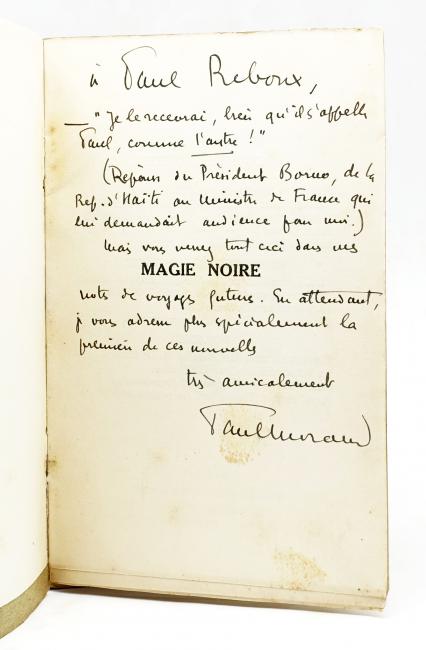 à Paul Reboux,
— "Je le recevrai, bien qu'il s'appelle
Paul, comme l'autre !"
(Réponse du Président Borno, de la
Rep. d'Haïti au Ministre de France qui
lui demandait audience pour moi.)
Mais vous verrez tout ceci dans mes
MAGIE NOIRE
notes de voyages futures. En attendant,
je vous adresse plus spécialement la
première de ces nouvelles
très amicalement
Paul Morand